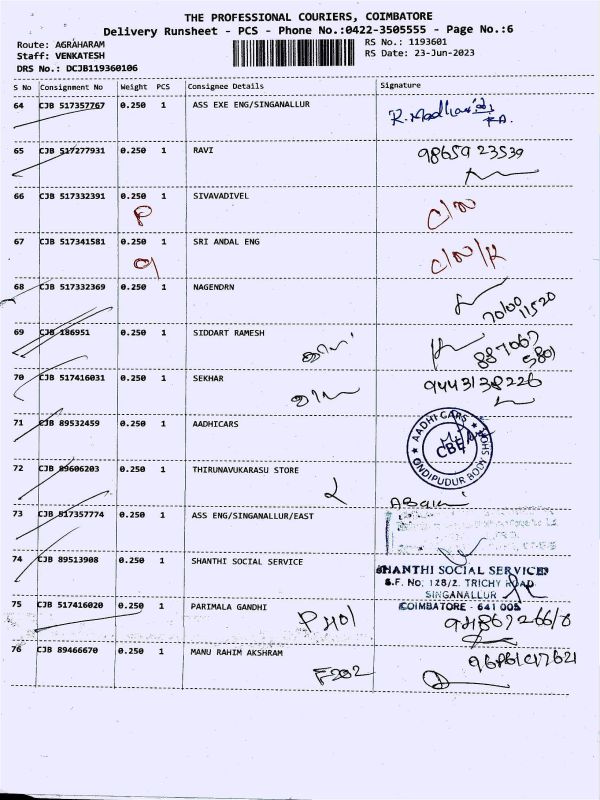 THE PROFESSIONAL COURIERS, COIMBATORE
Delivery Runsheet - PCS - Phone No.:0422-3505555 - Page No.:6
Route: AGRAHARAM
RS No.: 1193601
Staff: VENKATESH
RS Date: 23-Jun-2023
DRS No.: DCJB119360106
S No Consignment No Weight PCS Consignee Details Signature
64 CJB 517357767 0.250 1 ASS EXE ENG/SINGANALLUR
65 CJB 517277931 0.250 1 RAVI 98659 23539
66 CJB 517332391 0.250 1 SIVAVADIVEL C/N
P
67 CJB 517341581 0.250 1 SRI ANDAL ENG C/N/R
68 CJB 517332369 0.250 1 NAGENDRN
69 CJB 186951 0.250 1 SIDDART RAMESH
70 CJB 517416031 0.250 1 SEKHAR 9443138226
71 CJB 89532459 0.250 1 AADHICARS
AADHI CARS
CBE
ONDIPUDUR BODY SHOP
72 CJB 89606203 0.250 1 THIRUNAVUKARASU STORE
73 CJB 517357774 0.250 1 ASS ENG/SINGANALLUR/EAST
74 CJB 89513908 0.250 1 SHANTHI SOCIAL SERVICE
SHANTHI SOCIAL SERVICES
S.F. No: 128/2, TRICHY ROAD
SINGANALLUR
COIMBATORE - 641 005
75 CJB 517416020 0.250 1 PARIMALA GANDHI
76 CJB 89466670 0.250 1 MANU RAHIM AKSHRAM
F202